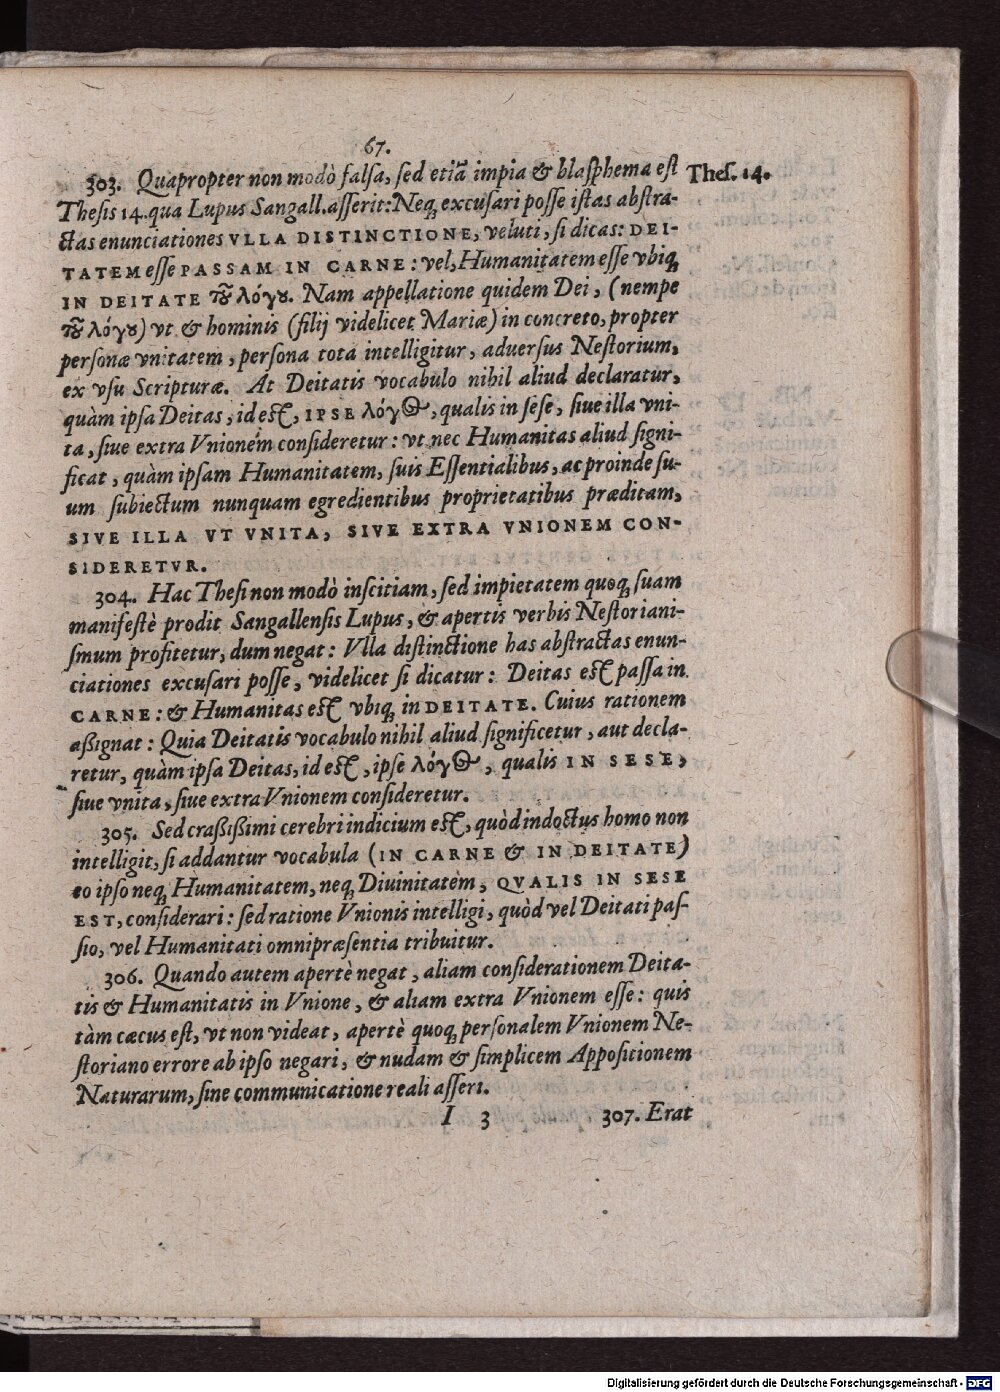 67.
303. Quapropter non modò falsa, sed etiā impia & blasphema est
Thes. 14.
Thesis 14. qua Lupus Sangall. asserit: Neq; excusari posse istas abstra-
ctas enunciationes VLLA DISTINCTIONE, veluti, si dicas: DEI-
TATEM esse PASSAM IN CARNE: vel, Humanitatem esse vbiq;
IN DEITATE τοῦ λόγου. Nam appellatione quidem Dei, (nempe
τοῦ λόγου) vt & hominis (filij videlicet Mariæ) in concreto, propter
personæ vnitatem, persona tota intelligitur, aduersus Nestorium,
ex vsu Scripturæ. At Deitatis vocabulo nihil aliud declaratur,
quàm ipsa Deitas, id est, IPSE λόγος, qualis in sese, siue illa vni-
ta, siue extra Vnionem consideretur: vt nec Humanitas aliud signi-
ficat, quàm ipsam Humanitatem, suis Essentialibus, ac proinde su-
um subiectum nunquam egredientibus proprietatibus præditam,
SIVE ILLA VT VNITA, SIVE EXTRA VNIONEM CON-
SIDERETVR.
304. Hac Thesi non modò inscitiam, sed impietatem quoq; suam
manifestè prodit Sangallensis Lupus, & apertis verbis Nestoriani-
smum profitetur, dum negat: Vlla distinctione has abstractas enun-
ciationes excusari posse, videlicet si dicatur: Deitas est passa in
CARNE: & Humanitas est vbiq; in DEITATE. Cuius rationem
aßignat: Quia Deitatis vocabulo nihil aliud significetur, aut decla-
retur, quàm ipsa Deitas, id est, ipse λόγος, qualis IN SESE,
siue vnita, siue extra Vnionem consideretur.
305. Sed craßißimi cerebri indicium est, quòd indoctus homo non
intelligit, si addantur vocabula (IN CARNE & IN DEITATE)
eo ipso neq; Humanitatem, neq; Diuinitatem, QVALIS IN SESE
EST, considerari: sed ratione Vnionis intelligi, quòd vel Deitati pas-
sio, vel Humanitati omnipræsentia tribuitur.
306. Quando autem apertè negat, aliam considerationem Deita-
tis & Humanitatis in Vnione, & aliam extra Vnionem esse: quis
tàm cæcus est, vt non videat, apertè quoq; personalem Vnionem Ne-
storiano errore ab ipso negari, & nudam & simplicem Appositionem
Naturarum, sine communicatione reali asseri.
I 3 307. Erat
Digitalisierung gefördert durch die Deutsche Forschungsgemeinschaft - DFG